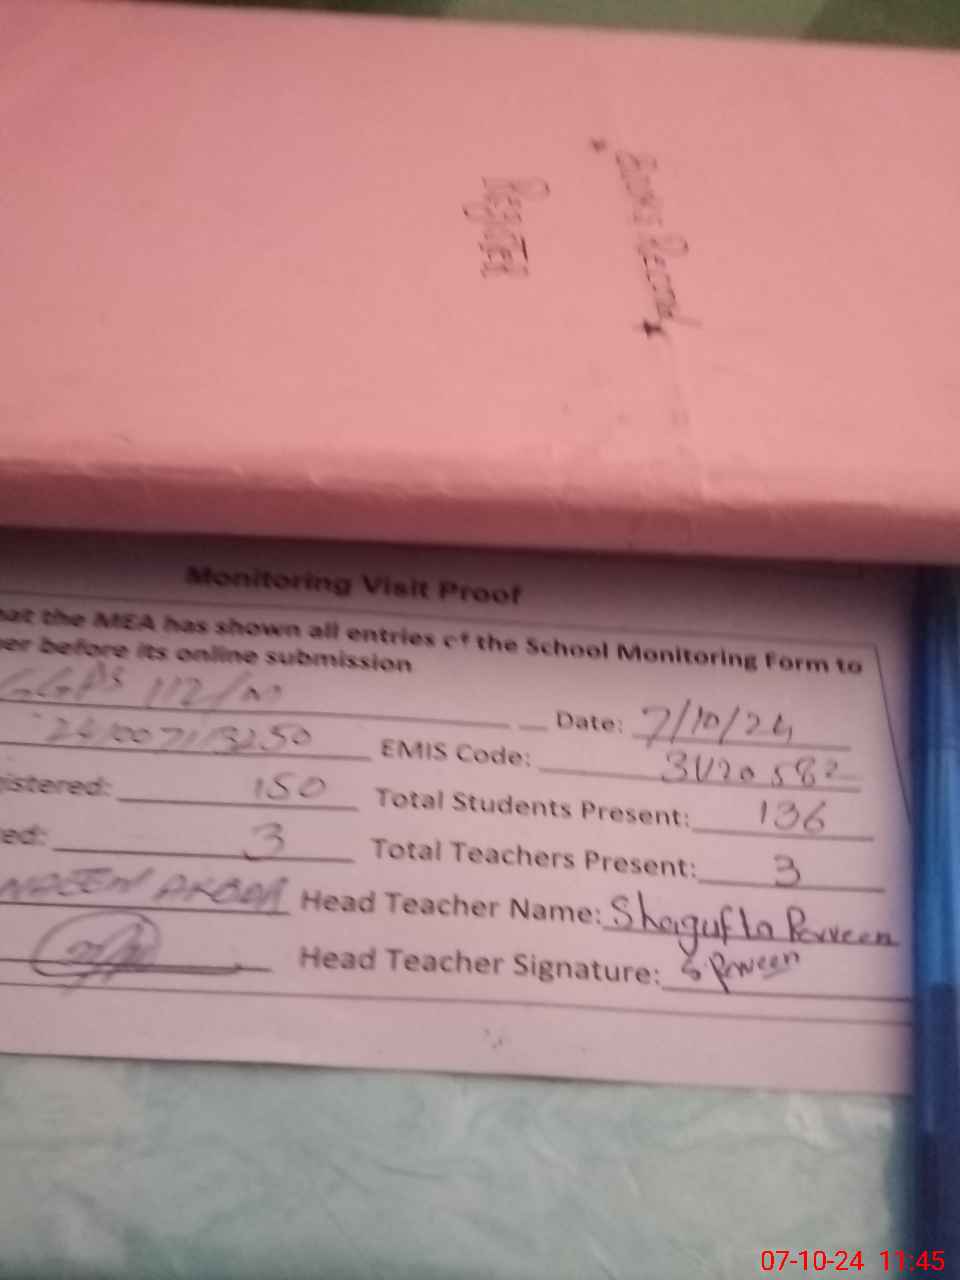 Books Record
Register
Monitoring Visit Proof
the MEA has shown all entries of the School Monitoring Form to
before its online submission
GGPS 112/M
Date: 7/10/24
EMIS Code: 31120582
istered: 150 Total Students Present: 136
ed: 3 Total Teachers Present: 3
Head Teacher Name: Shagufta Parveen
Head Teacher Signature: S Parveen
07-10-24 11:45